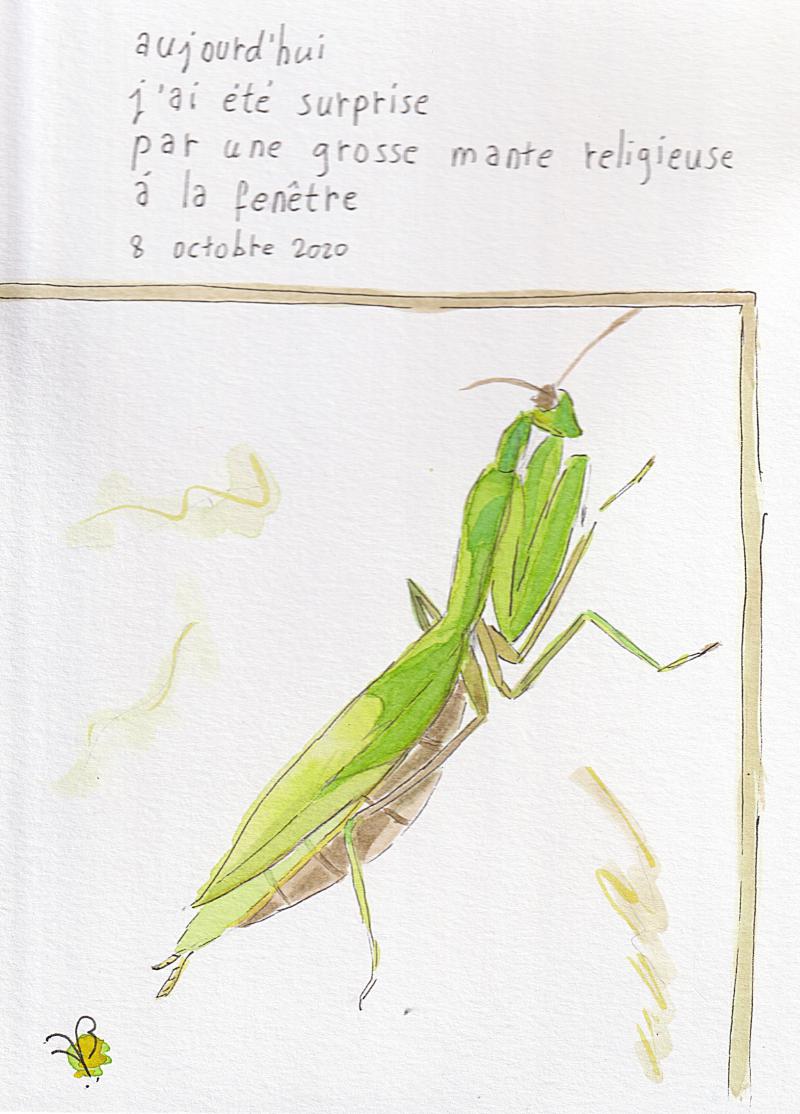 aujourd'hui
j'ai été surprise
par une grosse mante religieuse
á la fenêtre
8 octobre 2020